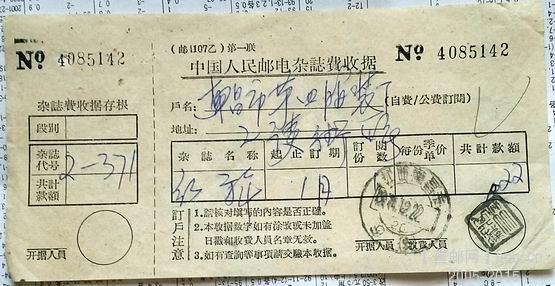 № 4085142
杂誌費收据存根
段別
杂誌代号 2-371
共計款額
开据人員
(邮1107乙) 第一联
№ 4085142
中国人民邮电杂誌費收据
戶名: 市第四服装厂 (自費/公費訂閱)
地址:
杂誌名称 起止訂期 訂閱份数 每份季单价 共計款額
红旗 1月 .22
訂戶注意
1. 請核对填写的內容是否正確。
2. 本收据数字如有涂改或未加盖日戳和收費人員名章无效。
3. 如有查詢等事項請交驗本收据。
开据人員 收費人員